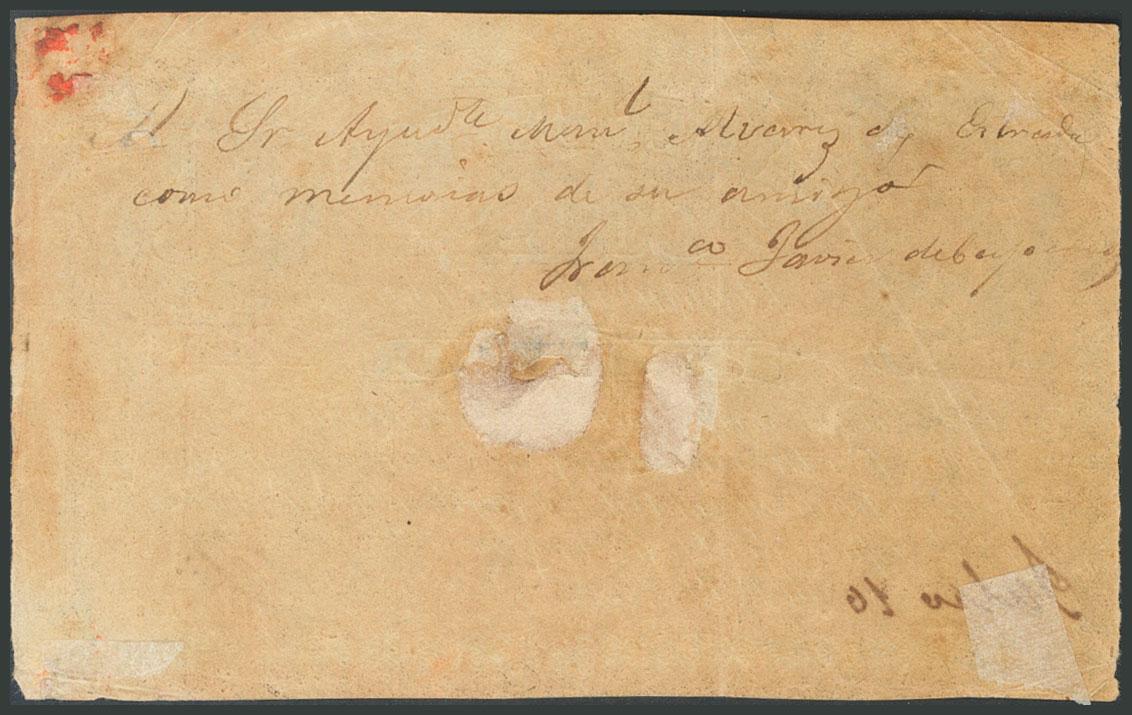 Al Sr Ayudte Alvarez de Estrada
como memorias de su amigo
Franco Javier de